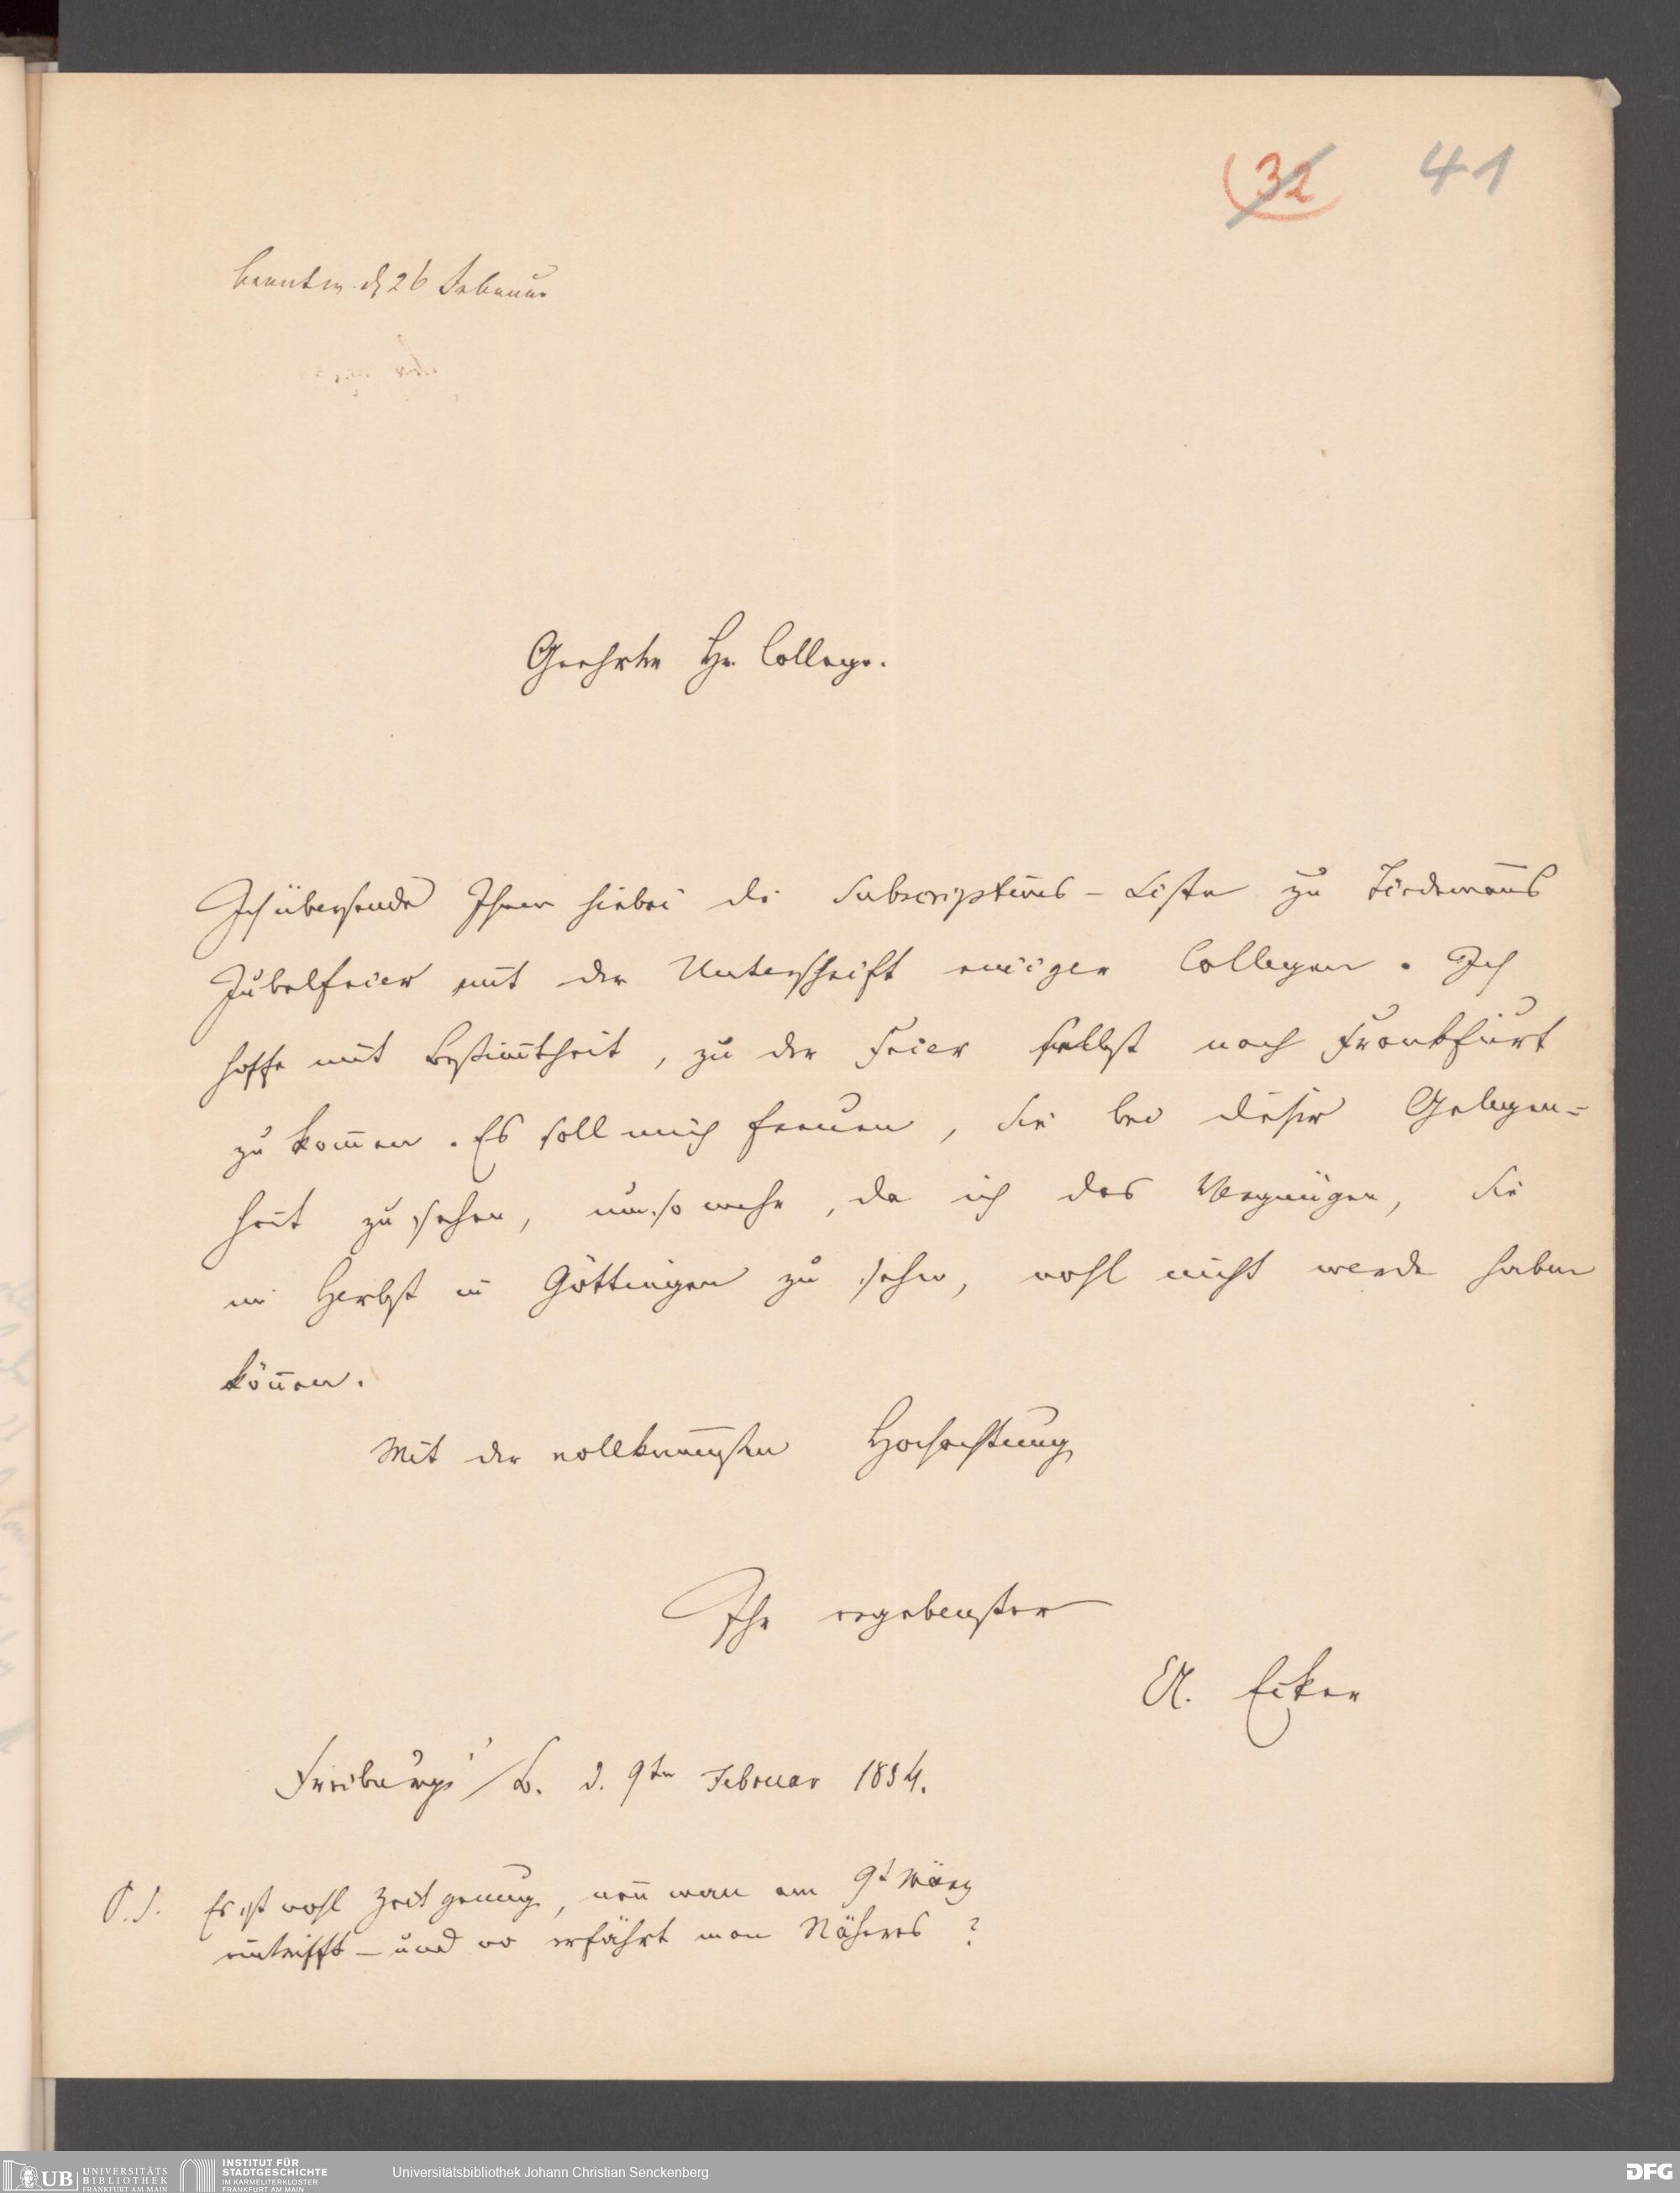 (32 41
beantw. d 26 Februar
Geehrter Hr. College.
Ich übersende Ihnen hiebei die Subscriptions-Liste zu Tiedemanns
Jubelfeier mit der Unterschrift einiger Collegen. Ich
hoffe mit Bestimtheit, zu der Feier selbst nach Frankfurt
zu kommen. Es soll mich freuen, Sie bei dieser Gelegen=
heit zu sehen, um so mehr, da ich das Vergnügen, Sie
im Herbst in Göttingen zu sehen, wohl nicht werde haben
können.
Mit der vollkommensten Hochachtung
Ihr ergebenster
A. Ecker
Freiburg i/B. d. 9ten Februar 1854.
P.S. Es ist wohl Zeit genug, wenn man am 9t März
eintrifft – und wo erfährt man Näheres?
UB UNIVERSITÄTS
BIBLIOTHEK
FRANKFURT AM MAIN
INSTITUT FÜR
STADTGESCHICHTE
IM KARMELITERKLOSTER
FRANKFURT AM MAIN
Universitätsbibliothek Johann Christian Senckenberg
DFG